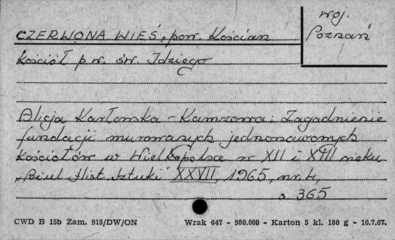 CZERWONA WIEŚ, pow. Kościan
woj.
Poznań
Kościół p.w. św. Idziego
Alicja Karłowska-Kamzowa: Zagadnienie
fundacji murowanych jednonawowych
kościołów w Wielkopolsce w XII i XIII wieku
"Biul. Hist. Sztuki" XXVII, 1965, nr 4,
s. 365
CWD B 13b Zam. 915/DW/ON Wrak 647 - 980.000 - Karton 5 kl. 180 g - 10.7.67.